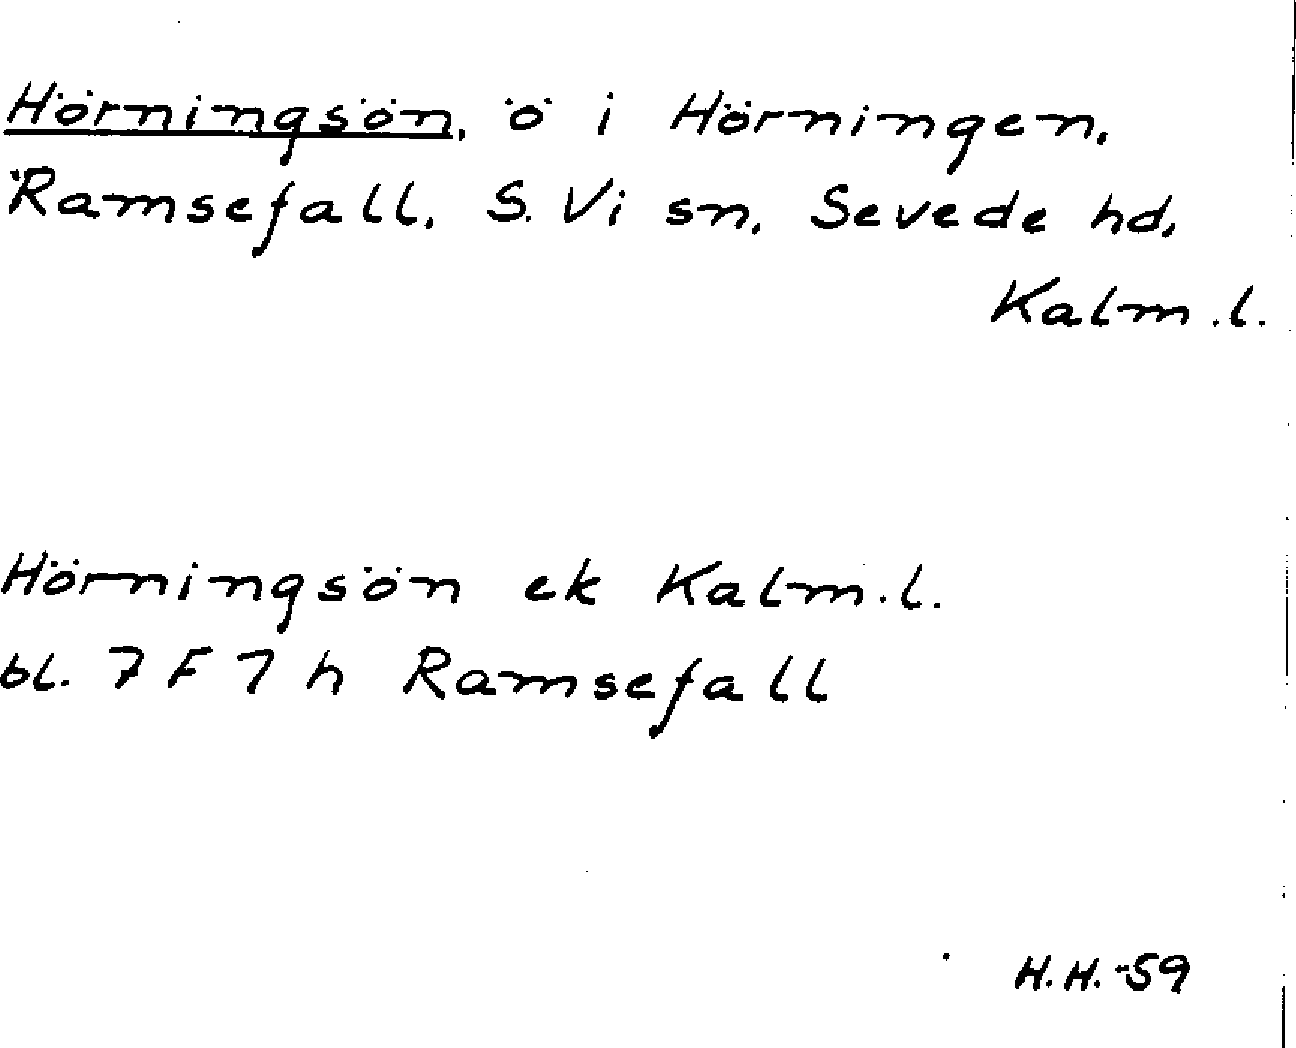 Hörningsön, ö i Hörningen,
Ramsefall, S. Vi sn, Sevede hd,
Kalm.l.
Hörningsön ek Kalm.l.
bl. 7 F 7 h Ramsefall
H.H.-59